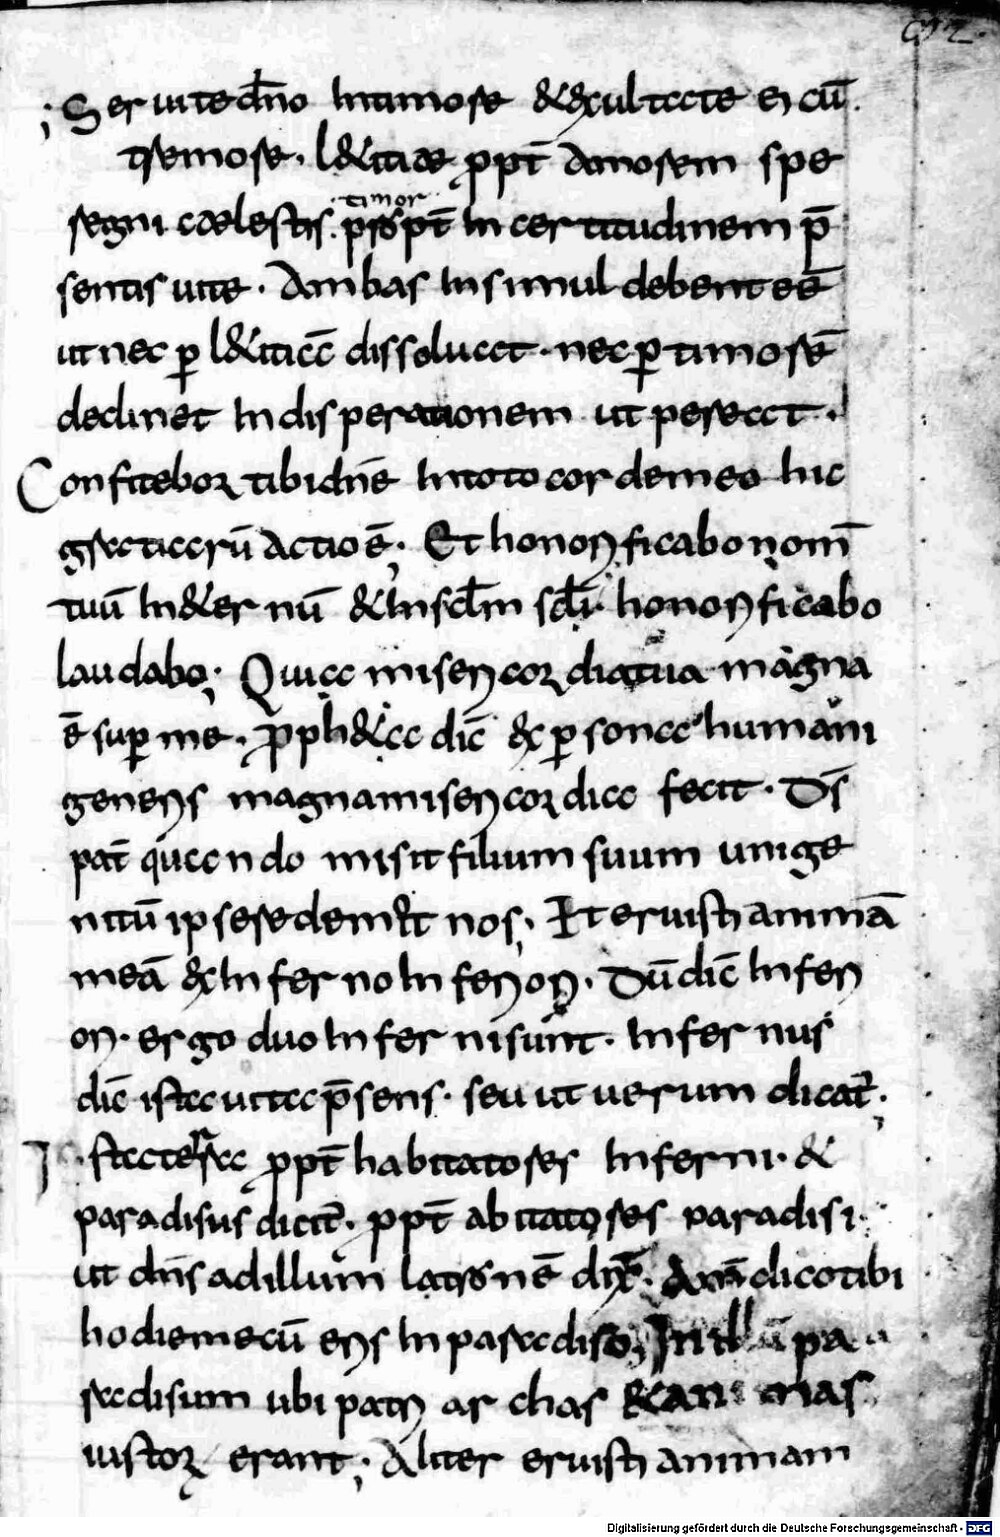 ; Seruite dn̄o In timore & exultate ei cū
tremore. l&itiae ꝓpt̄ Amorem spe
regni caelestis. timor ꝓpt̄ In certitudinem p̄
sentis uite. Ambas In simul debent eē
ut nec ꝑ l&itiā dissoluat. nec ꝑ timorē
declinet In disperationem ut pereat.
Confitebor tibi dn̄e In toto corde meo hic
gratiarū actio ē. Et honorificabo nom̄
tuū In &ernū & In sc̄lm sc̄li. honorificabo
laudabo; Quia misericordia tua magna
ē super me. ꝓph&a dic̄ ex ꝑsona humani
generis magnam misericordia fecit. Ds̄
pat̄ quando misit filium suum unige
nitū ipse redemit nos; Et eruisti animā
meā ex Inferno Inferiori. Dū dic̄ Inferi
ori. ergo duo Inferni sunt. Infernus
dic̄ ista uita p̄sens. seu ut uerum dicat̄;
Ista terra ꝓpt̄ habitatores Inferni. &
paradisus dicit̄. ꝓpt̄ abitatores paradisi.
ut dn̄s ad illum latronē dix̄. Am̄ dico tibi
hodie mecū eris In paradiso; In illū pa
radisum ubi patriarchas & animas
iustorum erant; Aliter eruisti animam
Digitalisierung gefördert durch die Deutsche Forschungsgemeinschaft - DFG